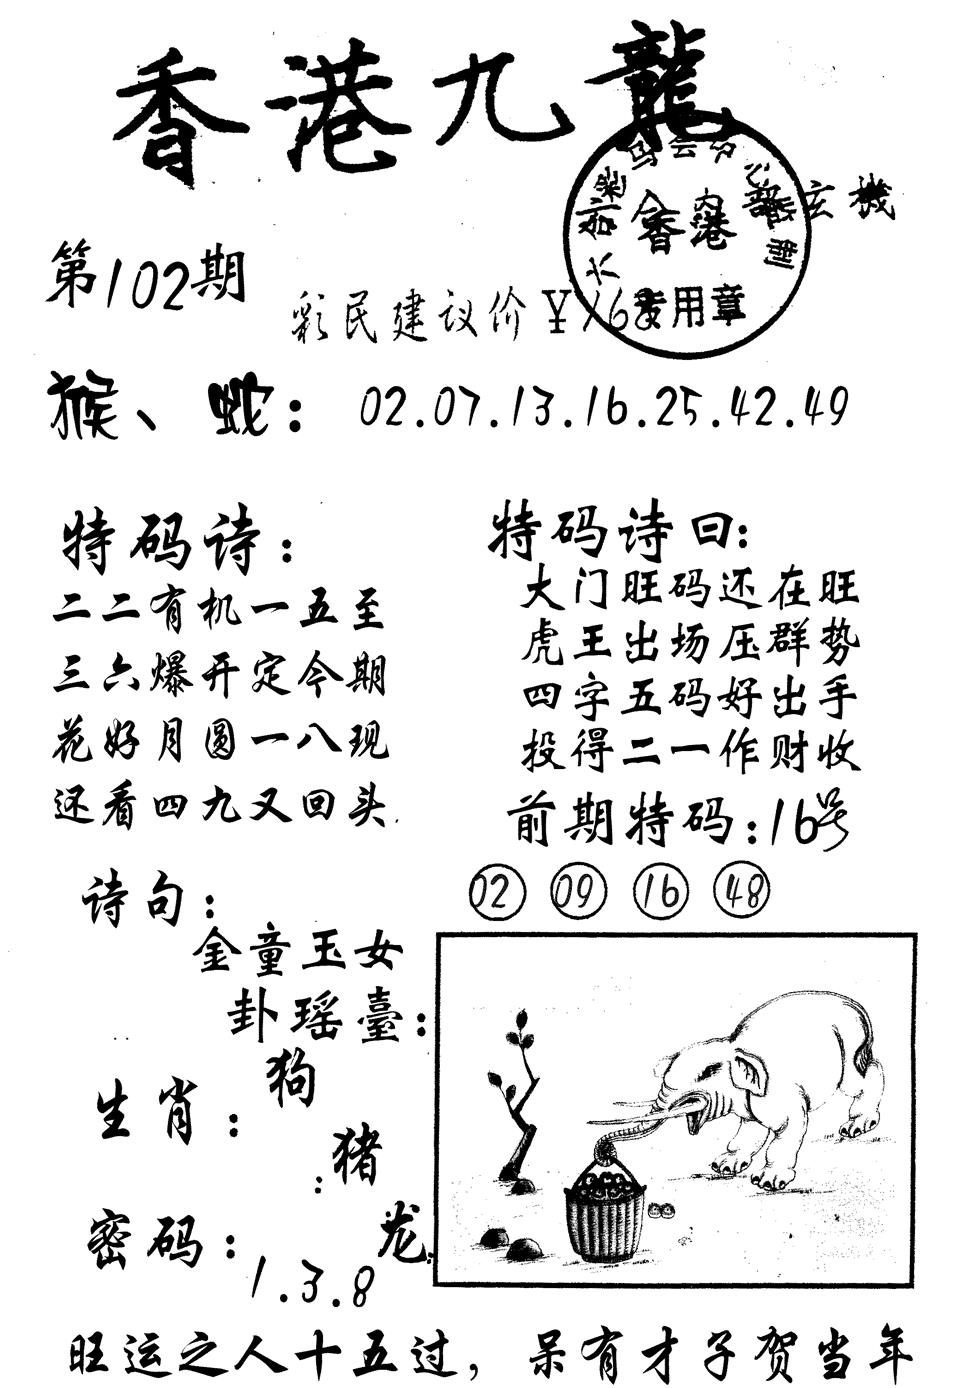 香港九龍
玄機
香港
专用章
第102期
彩民建议价￥168
猴、蛇：02.07.13.16.25.42.49
特码诗：
二二有机一五至
三六爆开定今期
花好月圆一八现
还看四九又回头.
特码诗曰：
大门旺码还在旺
虎王出场压群势
四字五码好出手
投得二一作财收
前期特码：16号
02 09 16 48
诗句：
金童玉女
卦瑶臺：
生肖：狗
：猪
龙.
密码：1.3.8
旺运之人十五过，呆有才子贺当年